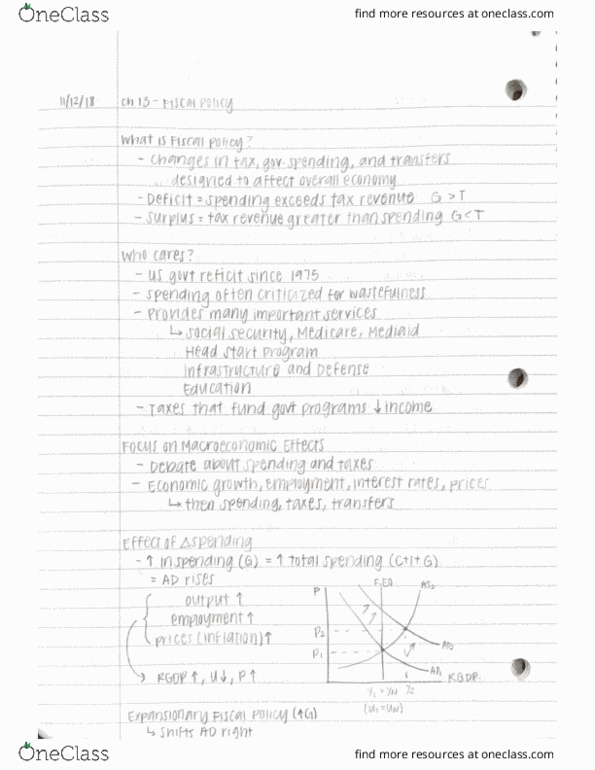 OneClass find more resources at oneclass.com
11/12/18 Ch 13 - Fiscal Policy
What is Fiscal Policy?
- changes in tax, gov. spending, and transfers
designed to affect overall economy
- Deficit = spending exceeds tax revenue G > T
- Surplus = tax revenue greater than spending G < T
Who cares?
- US govt reficit since 1975
- spending often criticized for wastefulness
- Provides many important services
↳ Social security, Medicare, Mediaid
Head Start Program
Infrastructure and Defense
Education
- Taxes that fund govt programs ↓ income
Focus on Macroeconomic Effects
- Debate about spending and taxes
- Economic growth, employment, interest rates, prices
↳ then spending, taxes, transfers
Effect of Δspending
- ↑ in spending (G) = ↑ total spending (C+I+G)
= AD rises
output ↑
employment ↑
prices (inflation) ↑
RGDP ↑, U↓, P ↑
P
AS₂
P₂
P₁
AD₂
AD₁
RGDP
Y₁ = YN Y₂
(U₁ = UN)
Expansionary Fiscal Policy (↑G)
↳ shifts AD right
OneClass find more resources at oneclass.com